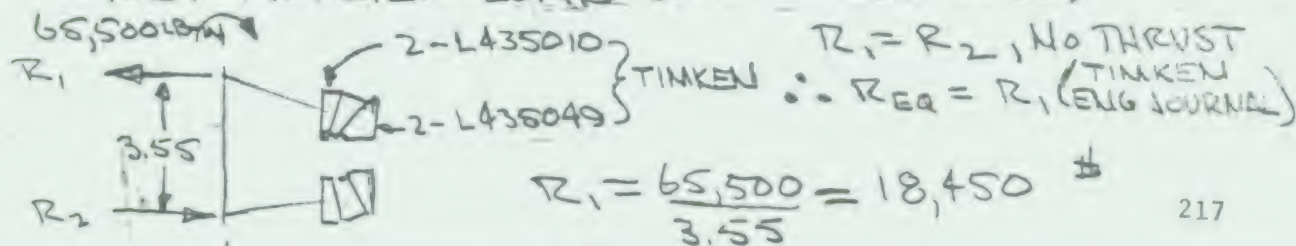 65,500 LB-IN
R₁
2-L435010
TIMKEN
2-L435049
3.55
R₂
R₁ = R₂, NO THRUST
∴ REQ = R₁ (TIMKEN ENG JOURNAL)
R₁ = 65,500 / 3.55 = 18,450 #
217